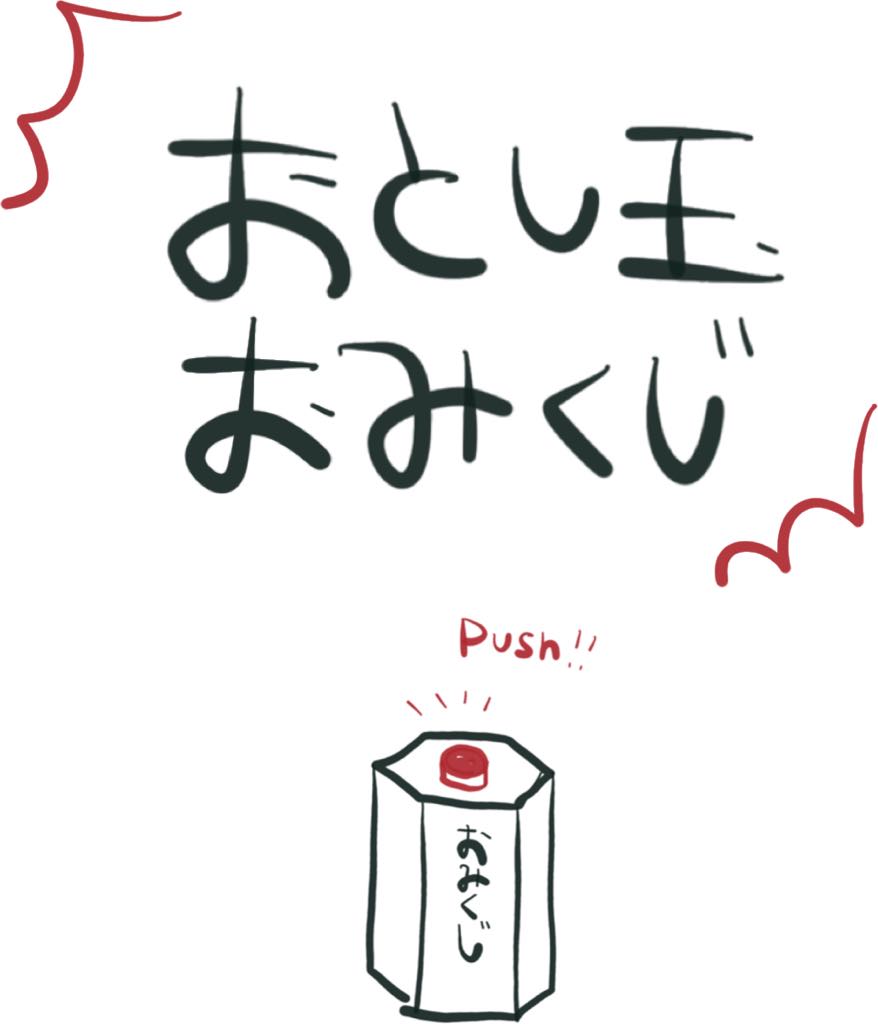 おとし玉
おみくじ
Push!!
おみくじ